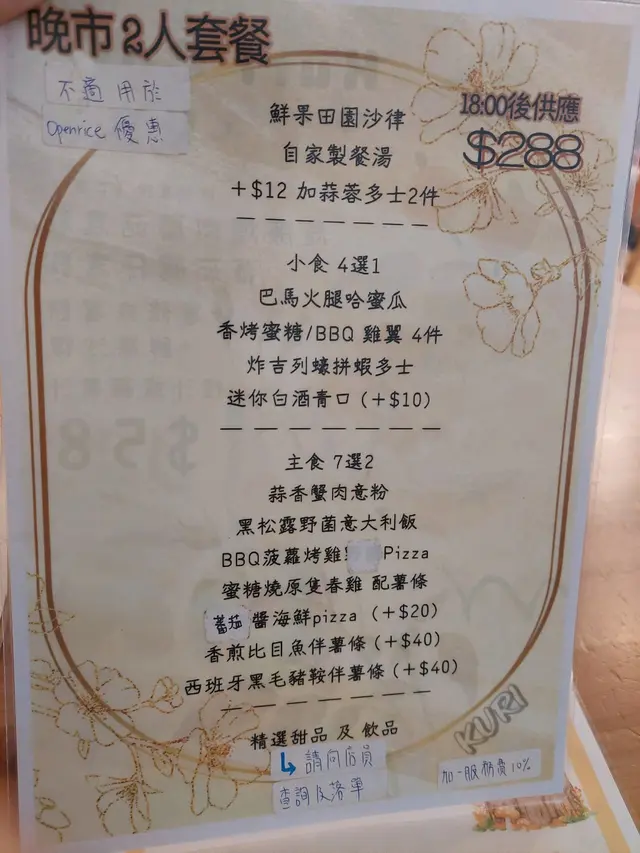 晚市2人套餐
不適用於
Openrice 優惠
18:00後供應
$288
鮮果田園沙律
自家製餐湯
+$12 加蒜蓉多士2件
小食 4選1
巴馬火腿哈蜜瓜
香烤蜜糖/BBQ 雞翼 4件
炸吉列蠔拼蝦多士
迷你白酒青口 (+$10)
主食 7選2
蒜香蟹肉意粉
黑松露野菌意大利飯
BBQ菠蘿烤雞 Pizza
蜜糖燒原隻春雞 配薯條
蕃茄醬海鮮pizza (+$20)
香煎比目魚伴薯條 (+$40)
西班牙黑毛豬鞍伴薯條 (+$40)
精選甜品 及 飲品
請向店員
查詢及落單
KURI
加一服務費10%
$58